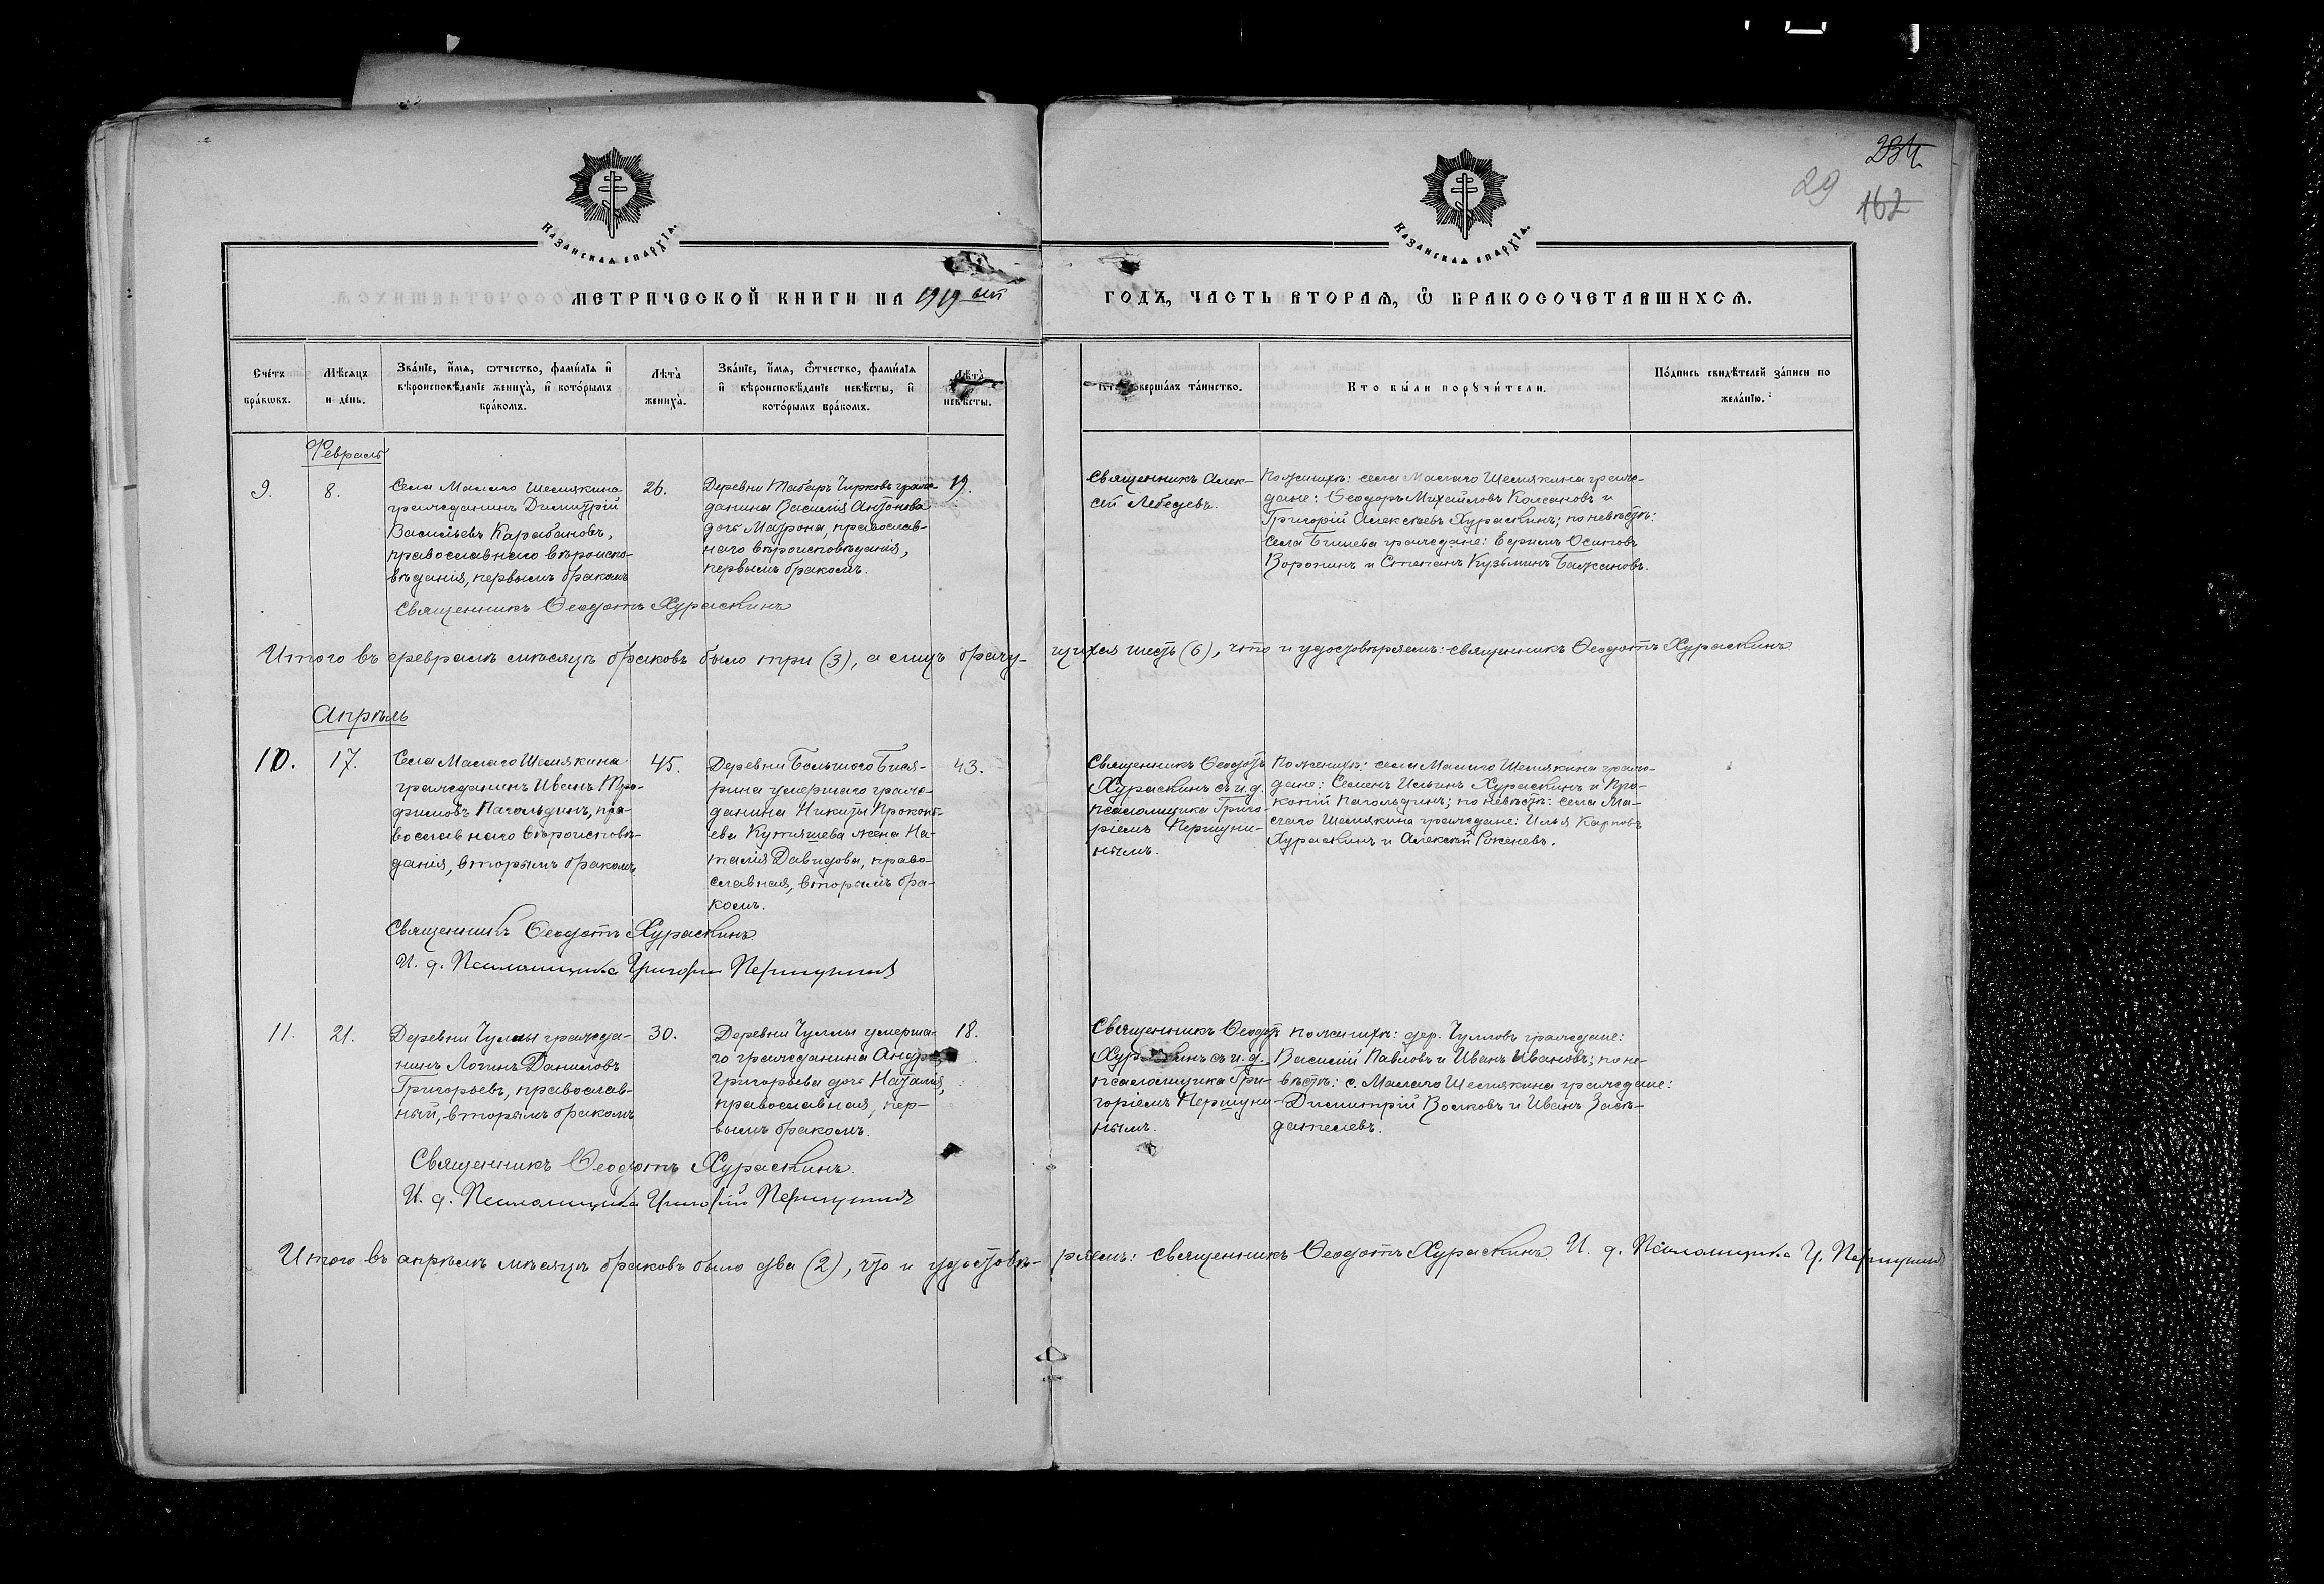 234
29
167
КАЗАНСКАѦ ЕПАРХІА.
КАЗАНСКАѦ ЕПАРХІА.
МЕТРИЧЕСКОЙ КНИГИ НА 1919 ый
ГОДЪ, ЧАСТЬ ВТОРАѦ, Ѿ БРАКОСОЧЕТАВШИХСѦ.
Сче́тъ бра́кωвъ.
Мѣ́сяцъ и де́нь.
Зва́нїе, и҆́мѧ, ѻтчество, фамилїѧ и҆ вѣроисповѣданїе жениха̀, и҆ кото́рымъ бра́комъ.
Лѣта̀ жениха̀.
Зва́нїе, и҆́мѧ, ѻтчество, фамилїѧ и҆ вѣроисповѣданїе невѣсты, и҆ кото́рымъ бра́комъ.
Лѣта̀ невѣсты.
Кто совершалъ та́инство.
Кто бы́ли порꙋчи́тели.
По́дпись свидѣ́телей за́писи по жела́нїю.
Февраль
9.
8.
Села Малаго Шемякина
гражданинъ Димитрій
Васильевъ Карабановъ,
православнаго вѣроиспо-
вѣданія, первымъ бракомъ
26.
Деревни Табаръ Чирковъ гражда-
данина Василія Антонова
дочь Матрона, православ-
наго вѣроисповѣданія,
первымъ бракомъ.
19.
Священникъ Алек-
сѣй Лебедевъ.
По женихѣ: села Малаго Шемякина граж-
дане: Ѳеодоръ Михайловъ Колсановъ и
Григорій Алексѣевъ Хураськинъ; по невѣстѣ:
села граждане: Ефремъ Осиповъ
Воронинъ и Степанъ Кузьминъ Бажановъ.
Священникъ Ѳеодотъ Хураськинъ
Итого въ февралѣ мѣсяцѣ браковъ было три (3), а лицъ брачу-
щихся шесть (6), что и удостовѣряемъ: священникъ Ѳеодотъ Хураськинъ
Апрѣль
10.
17.
Села Малаго Шемякина
гражданинъ Иванъ Тро-
фимовъ Пагольдинъ, пра-
вославнаго вѣроисповѣ-
данія, вторымъ бракомъ
45.
Деревни Большого Бися-
рина умершаго граж-
данина Никиты Прокопь-
ева Кутяшева жена На-
талія Давидова, право-
славная, вторымъ бра-
комъ.
43.
Священникъ Ѳеодотъ
Хураськинъ съ и.д.
псаломщика Григо-
ріемъ Першуни-
нымъ.
По женихѣ: села Малаго Шемякина граж-
дане: Семенъ Ильинъ Хураськинъ и Про-
копій Пагольдинъ; по невѣстѣ: села Ма-
лаго Шемякина граждане: Илья Карповъ
Хураськинъ и Алексѣй Роженевъ.
Священникъ Ѳеодотъ Хураськинъ.
И. д. Псаломщика Григорій Першунинъ
11.
21.
Деревни Чуллы гражда-
нинъ Логинъ Даниловъ
Григорьевъ, православ-
ный, вторымъ бракомъ
30.
Деревни Чуллы умерша-
го гражданина Андрея
Григорьева дочь Наталія,
православная, пер-
вымъ бракомъ.
18.
Священникъ Ѳеодотъ
Хураськинъ съ и.д.
псаломщика Гри-
горіемъ Першуни-
нымъ.
По женихѣ: дер. Чулловъ граждане:
Василій Павловъ и Иванъ Ивановъ; по не-
вѣстѣ: с. Малаго Шемякина граждане:
Димитрій Волковъ и Иванъ Засѣ-
дателевъ.
Священникъ Ѳеодотъ Хураськинъ.
И. д. Псаломщика Григорій Першунинъ
Итого въ апрѣлѣ мѣсяцѣ браковъ было два (2), что и удостовѣ-
ряемъ: священникъ Ѳеодотъ Хураськинъ И. д. Псаломщика Г. Першунинъ